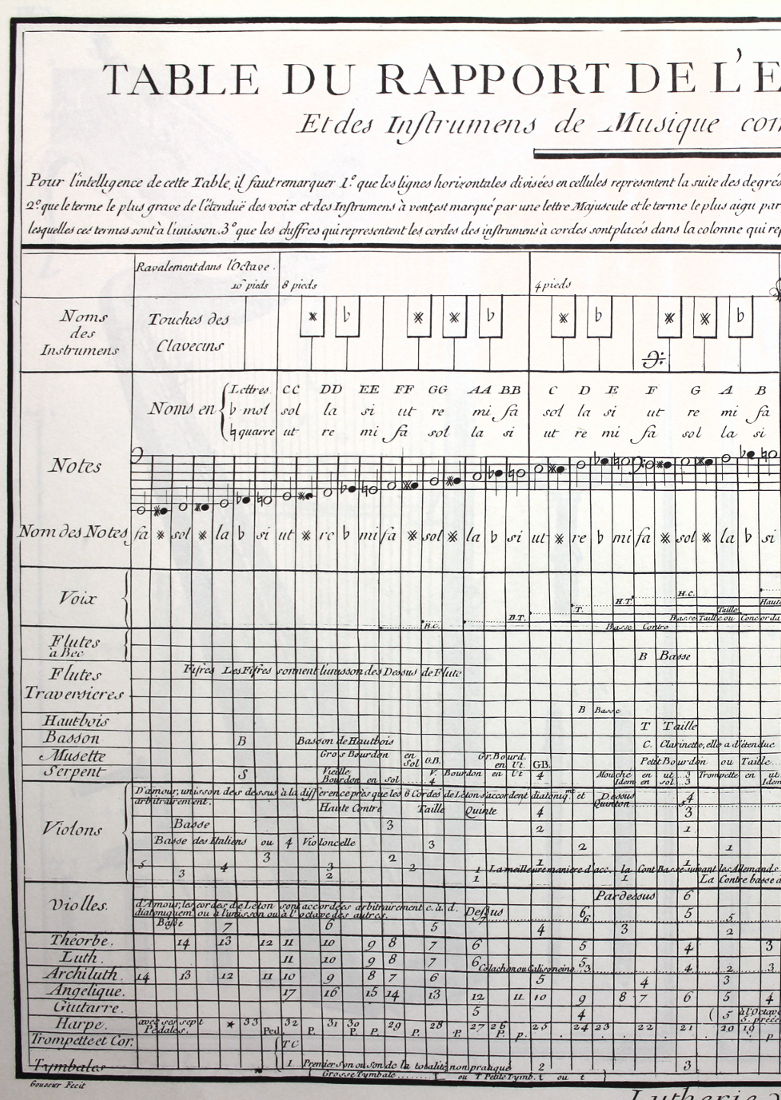 TABLE DU RAPPORT DE L'E
Et des Instrumens de Musique com
Pour l'intelligence de cette Table, il faut remarquer 1.º que les lignes horizontales divisées en cellules representent la suite des degrés
2.º que le terme le plus grave de l'étenduë des voix et des Instrumens à vent, est marqué par une lettre Majuscule et le terme le plus aigu par
lesquelles ces termes sont à l'unisson. 3.º que les chiffres qui representent les cordes des instrumens à cordes sont placés dans la colonne qui rep
Ravalement dans l'Octave.
10 pieds 8 pieds 4 pieds
Noms des Instrumens
Touches des Clavecins
Noms en
Lettres CC DD EE FF GG AA BB C D E F G A B
♭ mol sol la si ut re mi fa sol la si ut re mi fa
♮ quarre ut re mi fa sol la si ut re mi fa sol la si
Notes
Nom des Notes fa ※ sol ※ la ♭ si ut ※ re ♭ mi fa ※ sol ※ la ♭ si ut ※ re ♭ mi fa ※ sol ※ la ♭ si
Voix
B.C. B.T. T. H.T. H.C. Haute
Taille
Basse Taille ou Concorda
Basse Contre
Flutes à Bec
B Basse
Flutes Traversieres
Fifres Les Fifres sonnent l'unisson des Dessus de Flute
B Basse
Hautbois T Taille
Basson B Basson de Hautbois C. Clarinette, elle a d'étendue
Musette Gros Bourdon en sol G.B. Gr. Bourd. en Ut GB. Petit Bourdon ou Taille
Serpent S Vieille Bourdon en sol 4 V. Bourdon en Ut 4 Mouche en ut 3 Trompette en ut
Idem en sol 3 Idem
Violons
D'amour, unisson des dessus à la difference près que les 6 Cordes de Léton s'accordent diatoniq.nt et
arbitrairement.
Dessus 4
Quinton 5
Haute Contre Taille Quinte 4 3
Basse 3 2 1
Basse des Italiens ou 4 Violoncelle 3 2 1
3 2 1 1
5 4 3 2 1 La meilleure maniere d'acc. la Cont Basse suivant les Allemands
3 2 1 1 La Contre basse a
Violles.
Pardessus 6
d'Amour, les cordes de Léton sont accordées arbitrairement c. à. d.
diatoniquem.t ou à l'unisson ou à l'octave des autres.
Dessus 6 5 5
Basse 7 6 5 4 3 2
Théorbe. 14 13 12 11 10 9 8 7 6 5 4 3
Luth. 11 10 9 8 7 6 5
Colachon ou Calisoncino 3 2
Archiluth. 14 13 12 11 10 9 8 7 6 5 4 3
Angelique. 17 16 15 14 13 12 11 10 9 8 7 6 5 4
Guitarre. 5 4 ( 5 à l'Octave
Harpe. avec ses sept Pédales. 33 Ped. 32 P. 31 30 P. P. 29 P. 28 P. 27 26 P. p. 25 24 23 22 21 20 19 p
Trompette et Cor. TC
1 Premier son ou son de la totalité non pratiqué 2 3
Tymbales Grosse Tymbale T ou T Petite Tymb. t ou t
Gousser Fecit
Lutherie